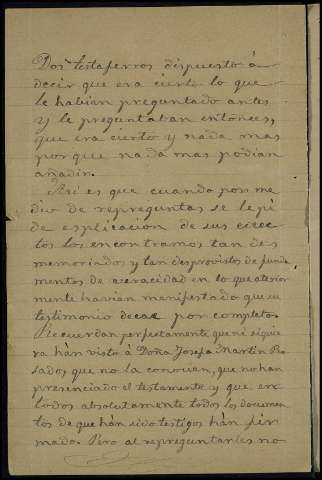 Dos testaferros dispuesto á
decir que era cierto lo que
le habian preguntado antes
y le preguntaban entonces,
que era cierto y nada mas
porque nada mas podian
añadir.
Asi es que cuando por me
dio de repreguntas se le pi
de esplicacion de sus
los encontramos tan des
memoriados y tan desprovistos de funda
mentos de veracidad en lo que anterior
mente havian manifestado que su
testimonio decae por completo.
Recuerdan perfectamente que ni siquie
ra hán visto á Doña Josefa Martin Po
sados, que no la conocen, que no han
presenciado el testamento y que en
todos absolutamente todos los documen
tos de que hán sido testigos hán fir
mado. Pero al repreguntarles no